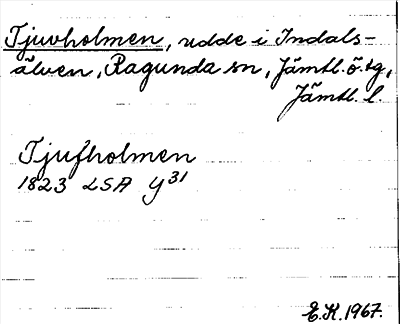 Tjuvholmen, udde i Indals-
älven, Ragunda sn, Jämtl. ö. tg,
Jämtl. l.
Tjufholmen
1823 LSA Y31
E.K. 1967.